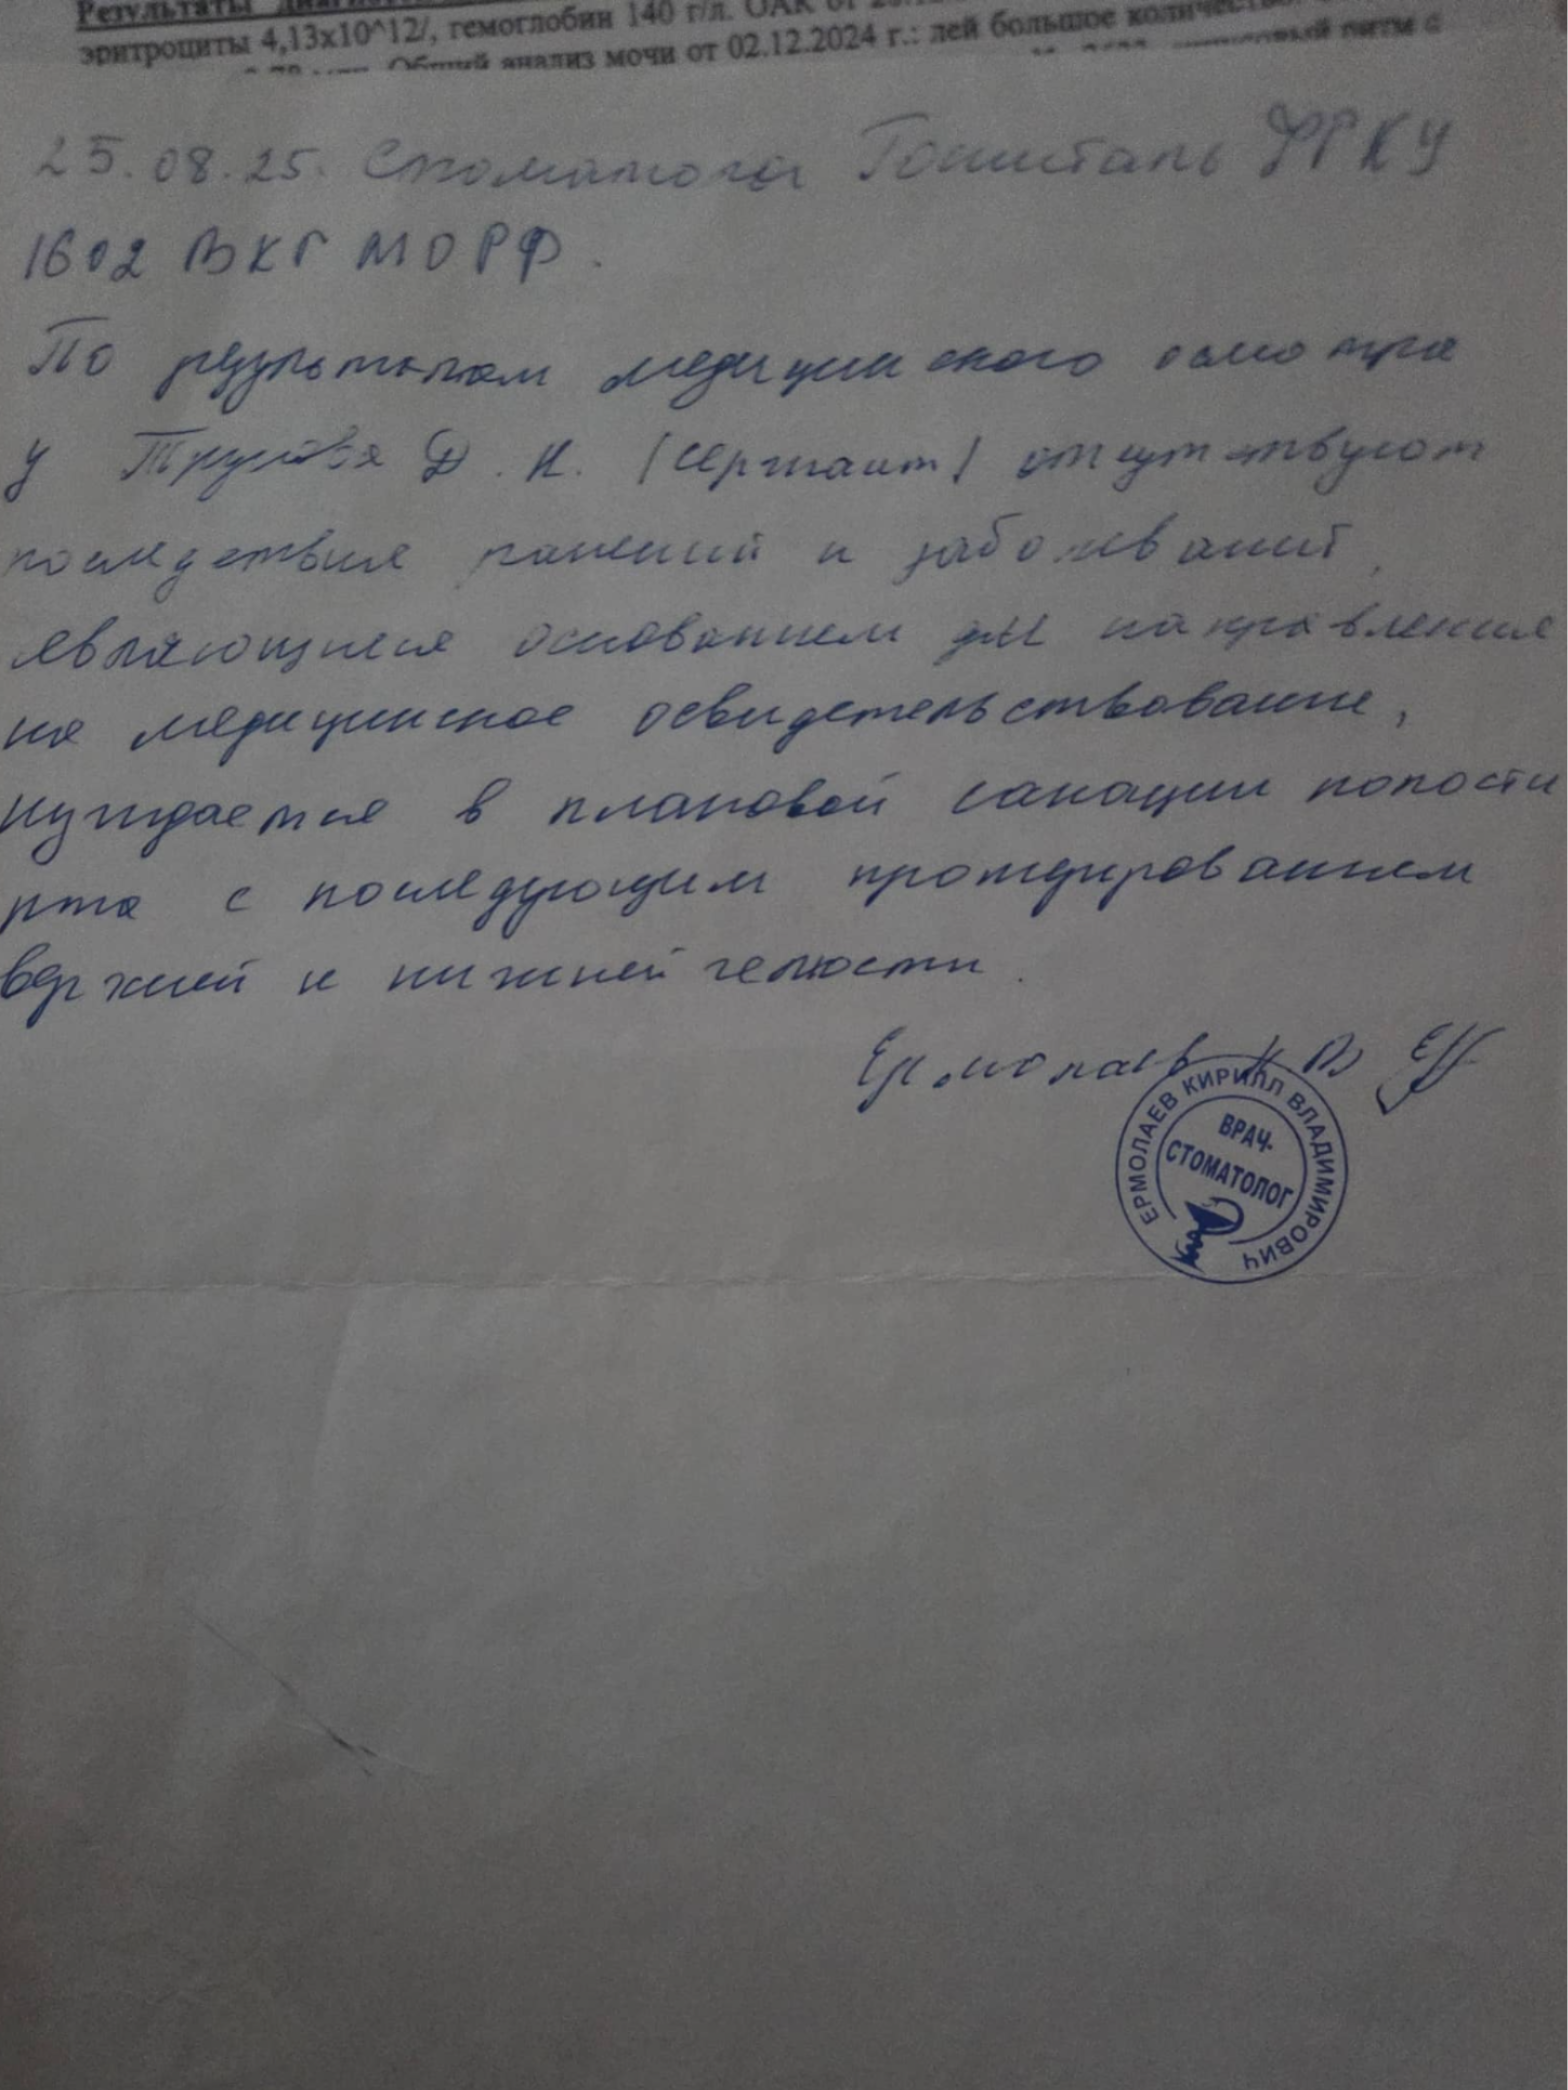 Результаты
эритроциты 4,13х10^12/, гемоглобин 140 г/л. ОАК от
Общий анализ мочи от 02.12.2024 г.: лей большое количество
ритм с
25.08.25. Стоматолог Госпиталь ФГКУ
1602 ВКГ МО РФ.
По результатам медицинского осмотра
у Д. К. (сержант) отсутствуют
последствия ранений и заболеваний,
являющиеся основанием для направления
на медицинское освидетельствование,
нуждается в плановой санации полости
рта с последующим протезированием
верхней и нижней челюсти.
Ермолаев К В
ЕРМОЛАЕВ КИРИЛЛ ВЛАДИМИРОВИЧ
ВРАЧ-
СТОМАТОЛОГ